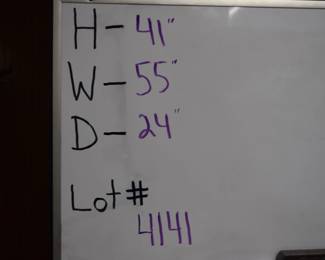 H - 41"
W - 55"
D - 24"
Lot #
4141